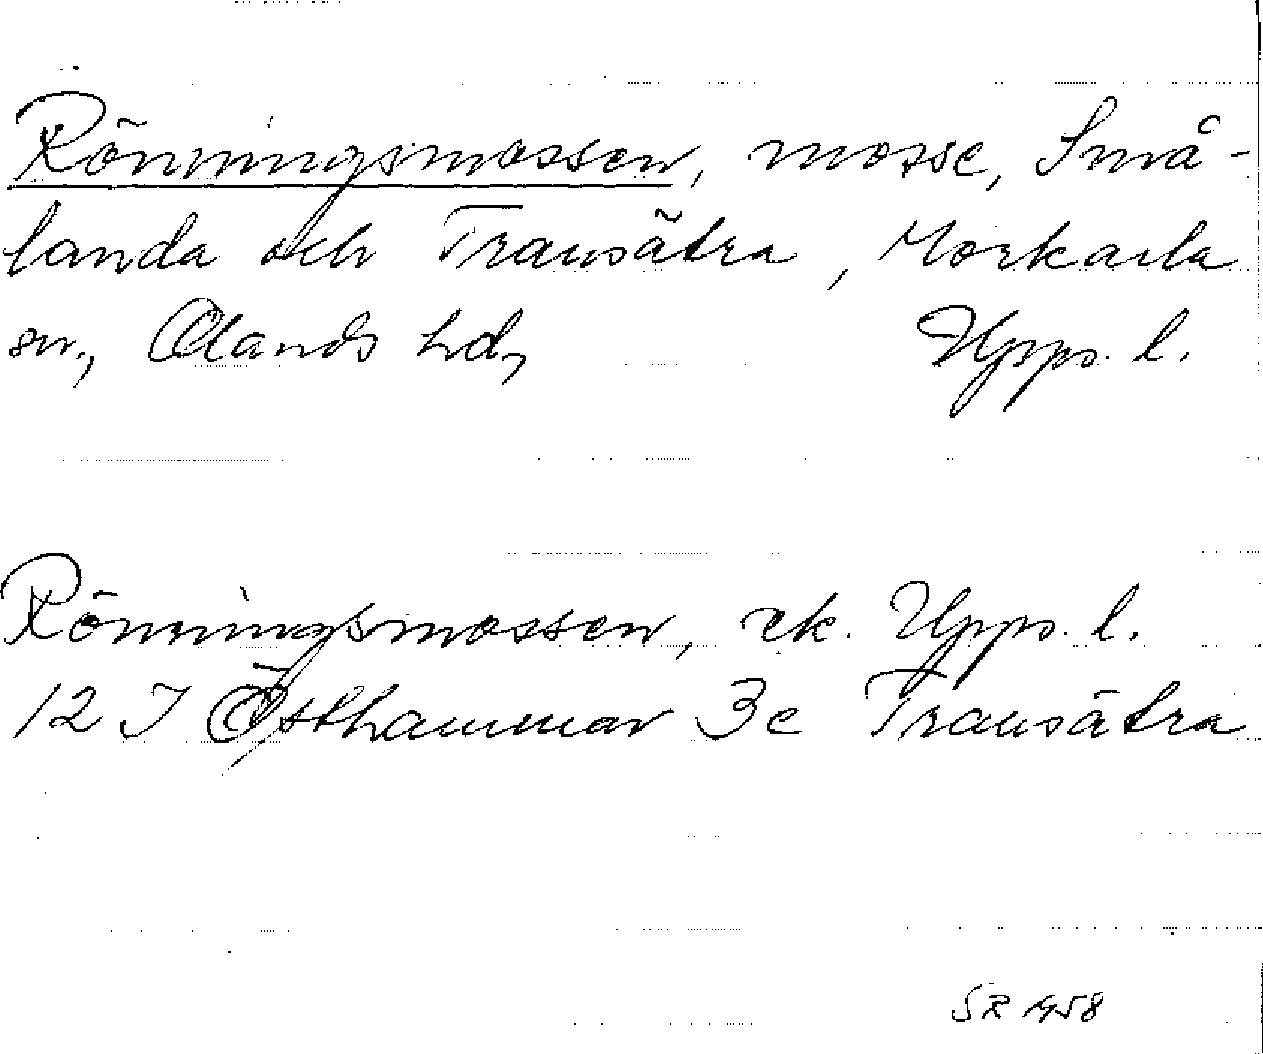 Rönningsmossen, mosse, Små-
landa och Transätra, Morkarla
sn., Olands hd, Upps. l.
Rönningsmossen, ek. Upps. l.
12 I Östhammar 3c Transätra
SR 1958